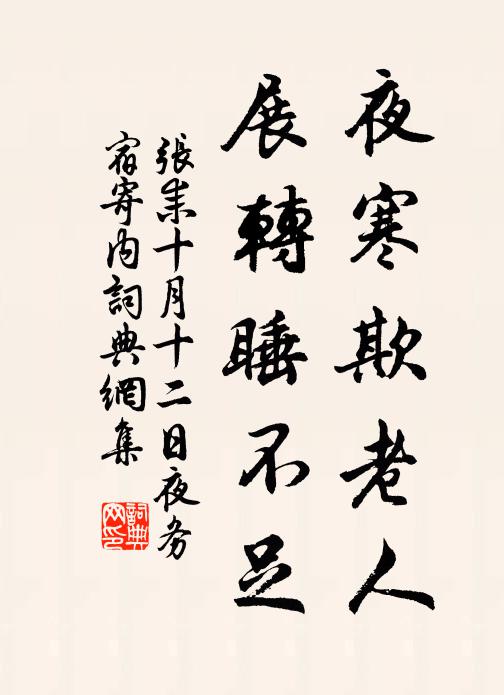 夜寒欺老人
展轉睡不足
張耒十月十二日夜务
宿寄内詞典網集
詞典
网印